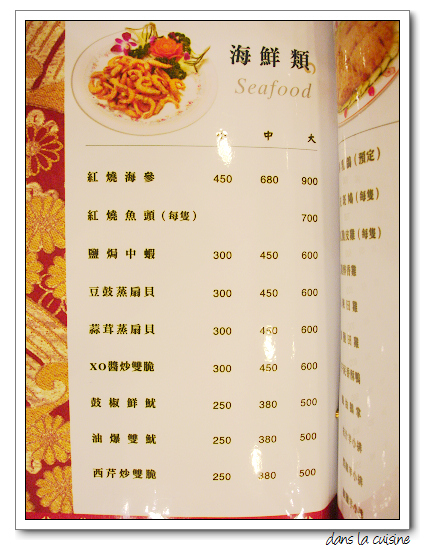 海鮮類
Seafood
小 中 大
紅燒海參 450 680 900
紅燒魚頭(每隻) 700
鹽焗中蝦 300 450 600
豆鼓蒸扇貝 300 450 600
蒜茸蒸扇貝 300 450 600
XO醬炒雙脆 300 450 600
鼓椒鮮魷 250 380 500
油爆雙魷 250 380 500
西芹炒雙脆 250 380 500
(預定)
(每隻)
(每隻)
dans la cuisine